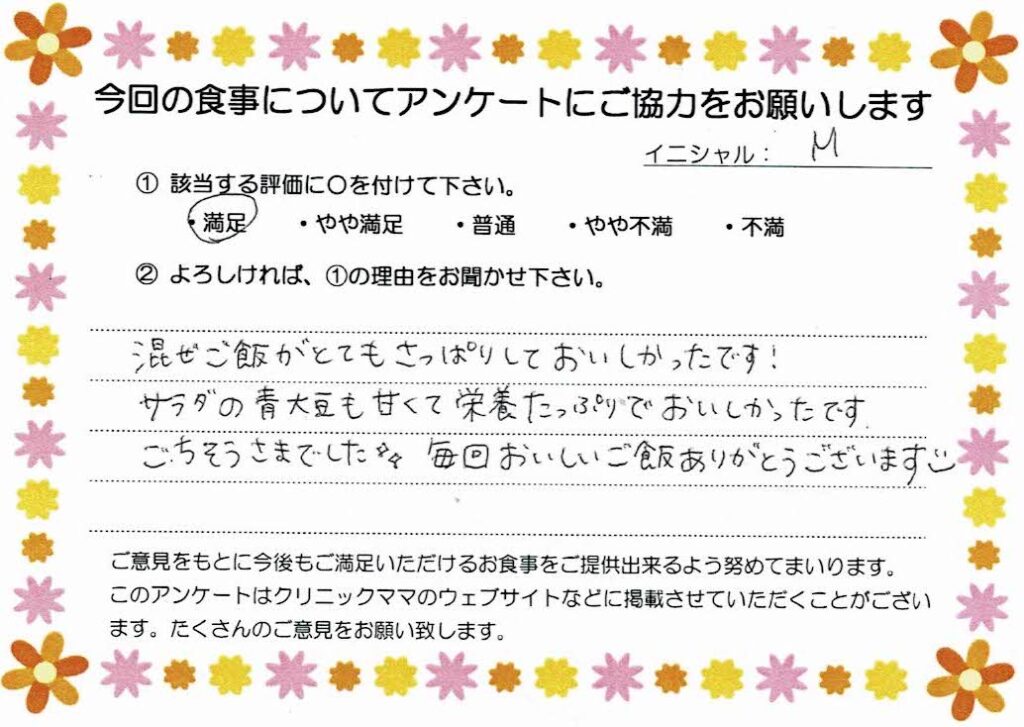 今回の食事についてアンケートにご協力をお願いします
イニシャル： M
① 該当する評価に〇を付けて下さい。
・満足 ・やや満足 ・普通 ・やや不満 ・不満
② よろしければ、①の理由をお聞かせ下さい。
混ぜご飯がとてもさっぱりしておいしかったです！
サラダの青大豆も甘くて栄養たっぷりでおいしかったです.
ごちそうさまでした 毎回おいしいご飯ありがとうございます
ご意見をもとに今後もご満足いただけるお食事をご提供出来るよう努めてまいります。
このアンケートはクリニックママのウェブサイトなどに掲載させていただくことがござい
ます。たくさんのご意見をお願い致します。